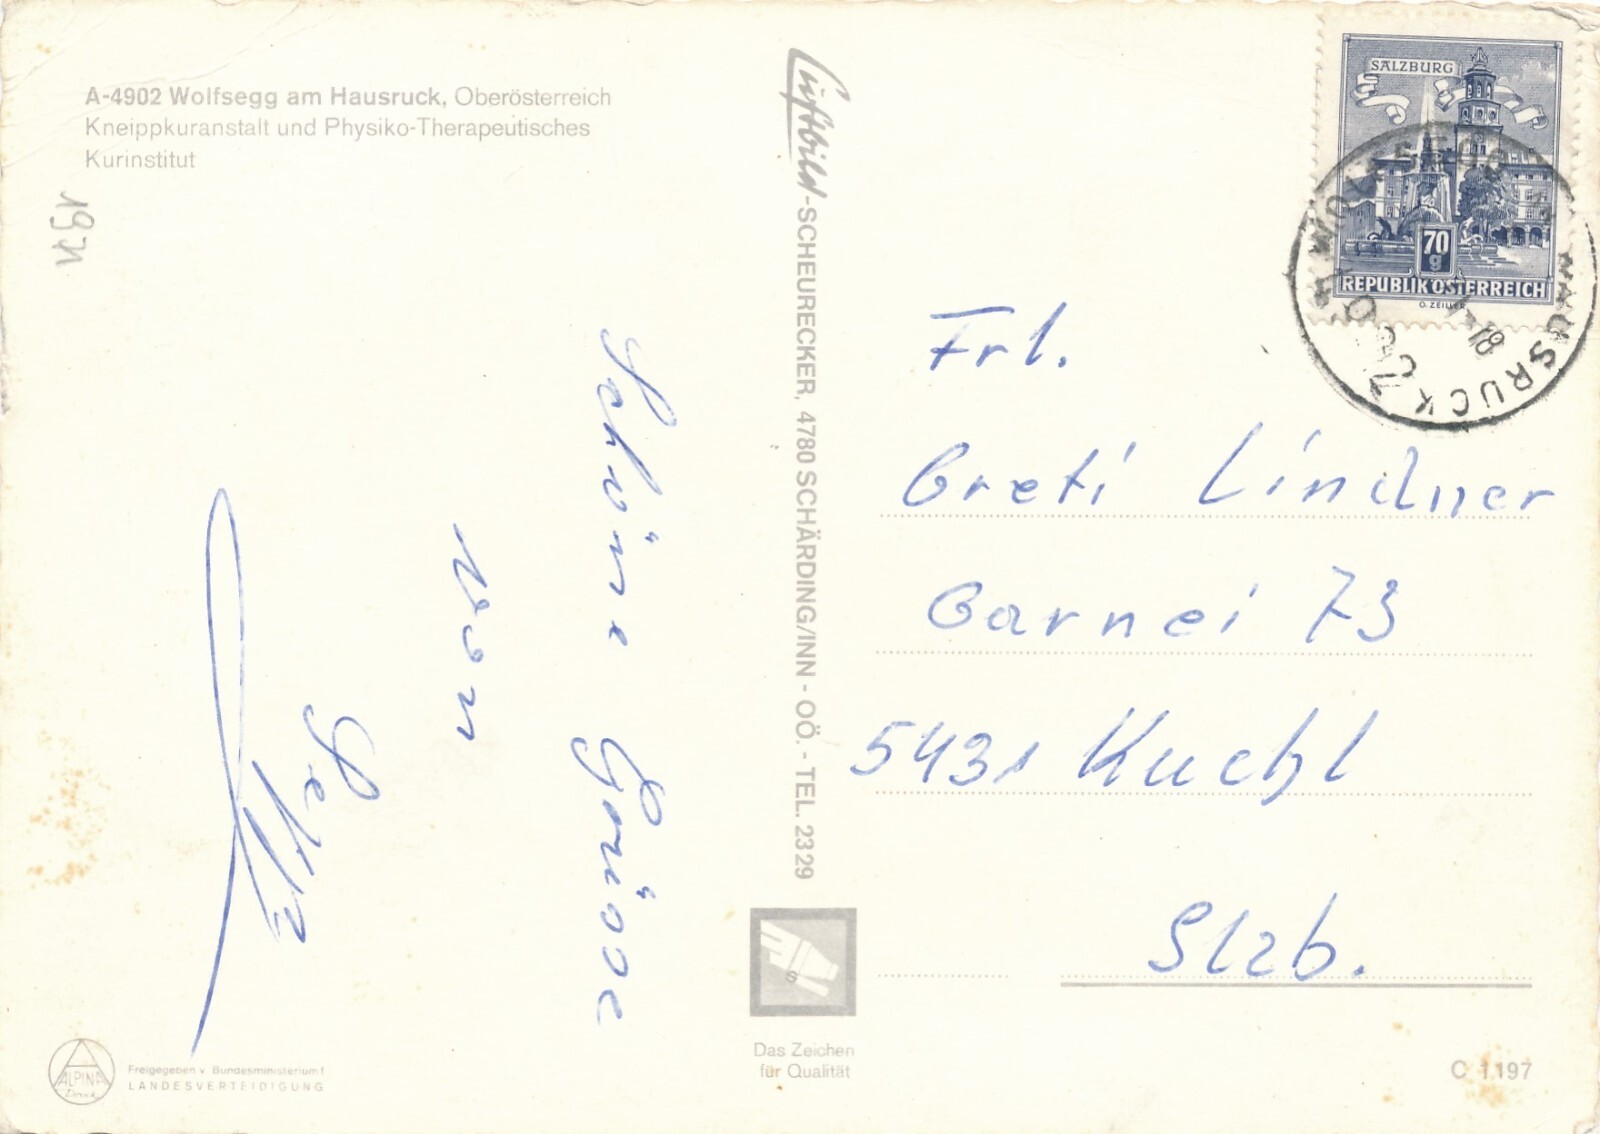 A-4902 Wolfsegg am Hausruck, Oberösterreich
Kneippkuranstalt und Physiko-Therapeutisches
Kurinstitut
1971
Schöne Grüsse
von
Luftbild-SCHEURECKER, 4780 SCHÄRDING/INN - OÖ. - TEL. 2329
SALZBURG
70
g
REPUBLIK ÖSTERREICH
O. ZEILLER
WOLFSEGG AM HAUSRUCK
4902
-18
Frl.
Greti Lindner
Garnei 73
5431 Kuchl
Slzb.
S
Das Zeichen
für Qualität
ALPINA
Druck
Freigegeben v. Bundesministerium f.
LANDESVERTEIDIGUNG
C 1197